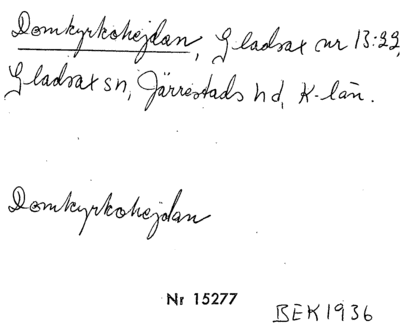 Domkyrkohejdan, Gladsax nr 13:22,
Gladsax sn, Järrestads hd, K-län.
Domkyrkohejdan
Nr 15277
BEK 1936